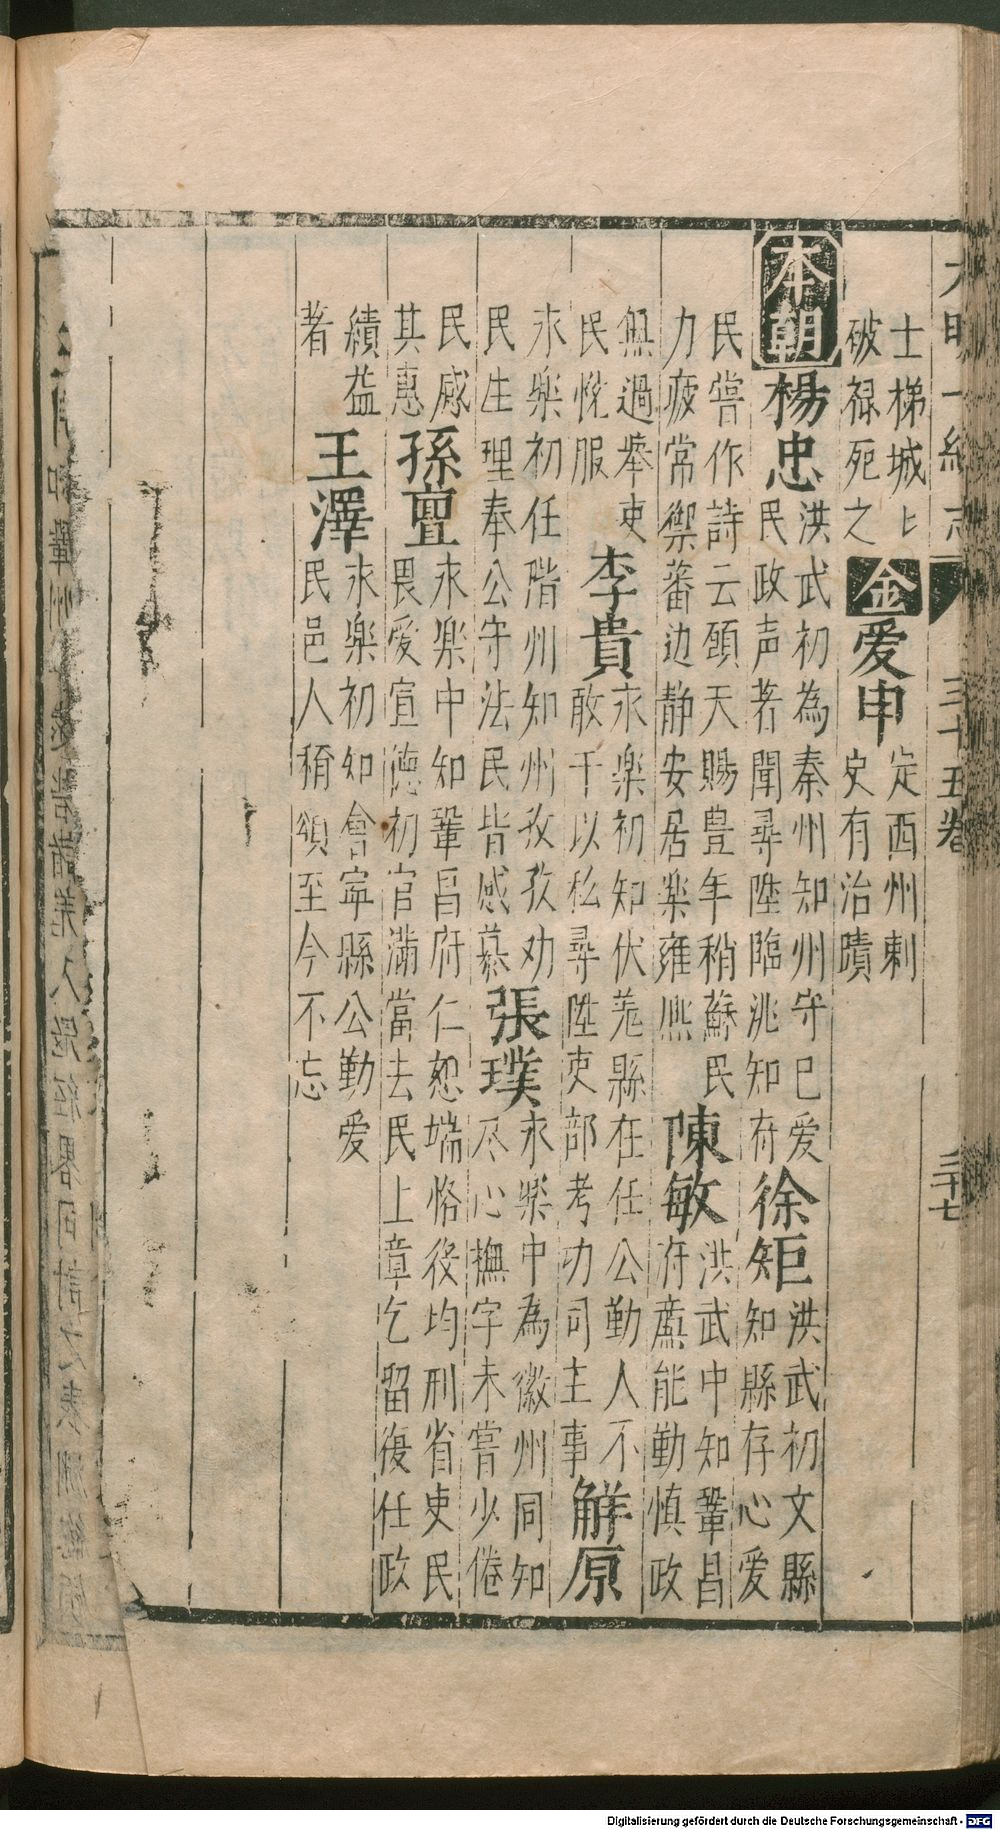 大明一統志 三十五卷 三十七
士梯城匕
破禄死之
金
爱申
定西州刺
史有治蹟
本朝
楊忠
洪武初為秦州知州守巳爱
民政声著聞尋陞臨洮知府
徐矩
洪武初文縣
知縣存心爱
民嘗作詩云頋天賜豊年稍蘇民
力疲常禦蕃边静安居楽雍熈
陳敏
洪武中知鞏昌
府廉能勤慎政
無過举吏
民悅服
李貴
永楽初知伏羌縣在任公勤人不
敢干以私尋陞吏部考功司主事
觧原
永楽初任階州知州孜孜劝
民生理奉公守法民皆感慕
張璞
永楽中為徽州同知
尽心撫字未嘗少倦
民感
其惠
孫亶
永楽中知鞏昌府仁恕端恪役均刑省吏民
畏爱宣德初官滿當去民上章乞留復任政
績益
著
王澤
永楽初知會寧縣公勤爱
民邑人稱頌至今不忘
Digitalisierung gefördert durch die Deutsche Forschungsgemeinschaft - DFG